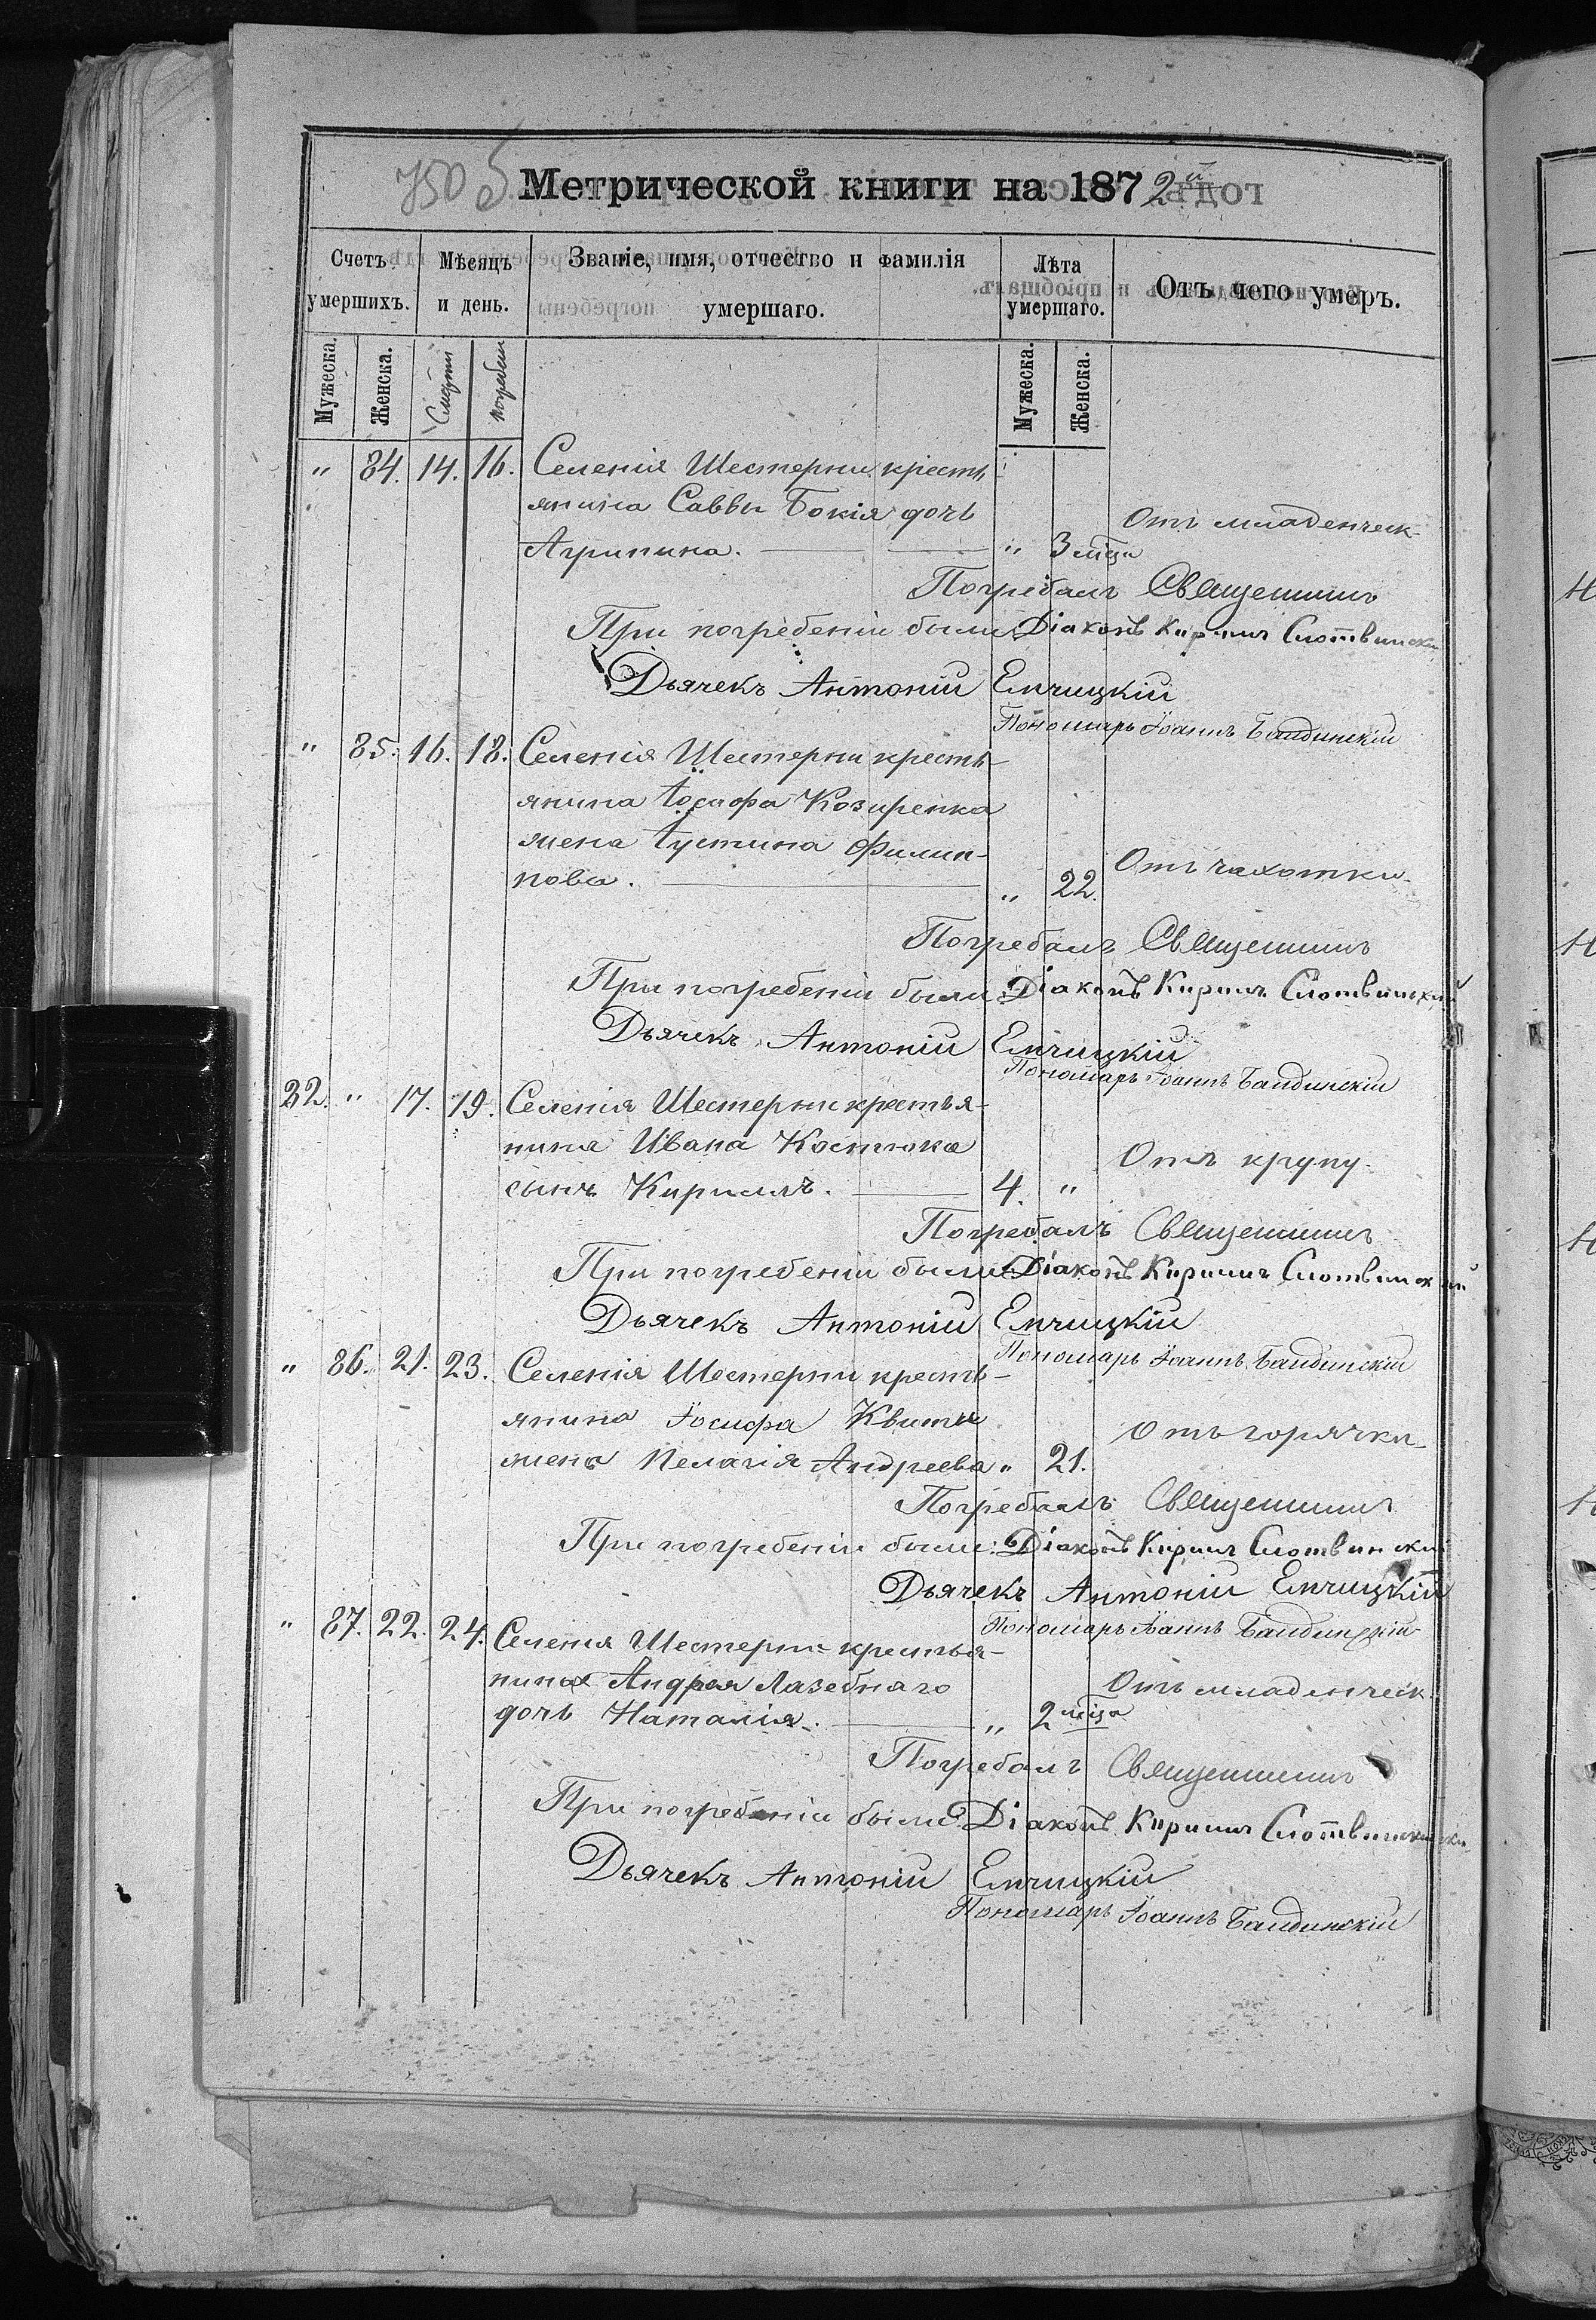 750 б
Метрической книги на 1872й
Счетъ умершихъ.
Мѣсяцъ и день.
Званіе, имя, отчество и фамилія умершаго.
Лѣта умершаго.
Отъ чего умеръ.
Мужеска. Женска. Смерти погребен Мужеска. Женска.
" 84. 14. 16. Селенія Шестерни кресть-
янина Саввы Бокія дочь Отъ младенческ-
Агрипина. — " 3 мѣца
Погребалъ Священникъ
При погребеніи были: Діаконъ Кириллъ Слотвинскій
Дьячекъ Антоній Емчицкій
Пономарь Іоаннъ Бандинскій
" 85. 16. 18. Селенія Шестерни кресть-
янина Іосифа Козиренка
жена Іустина Филип- Отъ чахотки.
пова. — " 22.
Погребалъ Священникъ
При погребеніи были: Діаконъ Кириллъ Слотвинскій
Дьячекъ Антоній Емчицкій
Пономарь Іоаннъ Бандинскій
32. " 17. 19. Селенія Шестерни крестья-
нина Ивана Костюка Отъ крупу.
сынъ Кириллъ. — 4. "
Погребалъ Священникъ
При погребеніи были: Діаконъ Кириллъ Слотвинскій
Дьячекъ Антоній Емчицкій
Пономарь Іоаннъ Бандинскій
" 86. 21. 23. Селенія Шестерни кресть-
янина Іосифа Квитки Отъ горячки.
жена Пелагія Андреева " 21.
Погребалъ Священникъ
При погребеніи были: Діаконъ Кириллъ Слотвинскій
Дьячекъ Антоній Емчицкій
Пономарь Іоаннъ Бандинскій
" 87. 22. 24. Селенія Шестерни крестья-
нина Андрея Лазебнаго Отъ младенческ.
дочь Наталія. — " 2 мѣца
Погребалъ Священникъ
При погребеніи были: Діаконъ Кириллъ Слотвинскій
Дьячекъ Антоній Емчицкій
Пономарь Іоаннъ Бандинскій